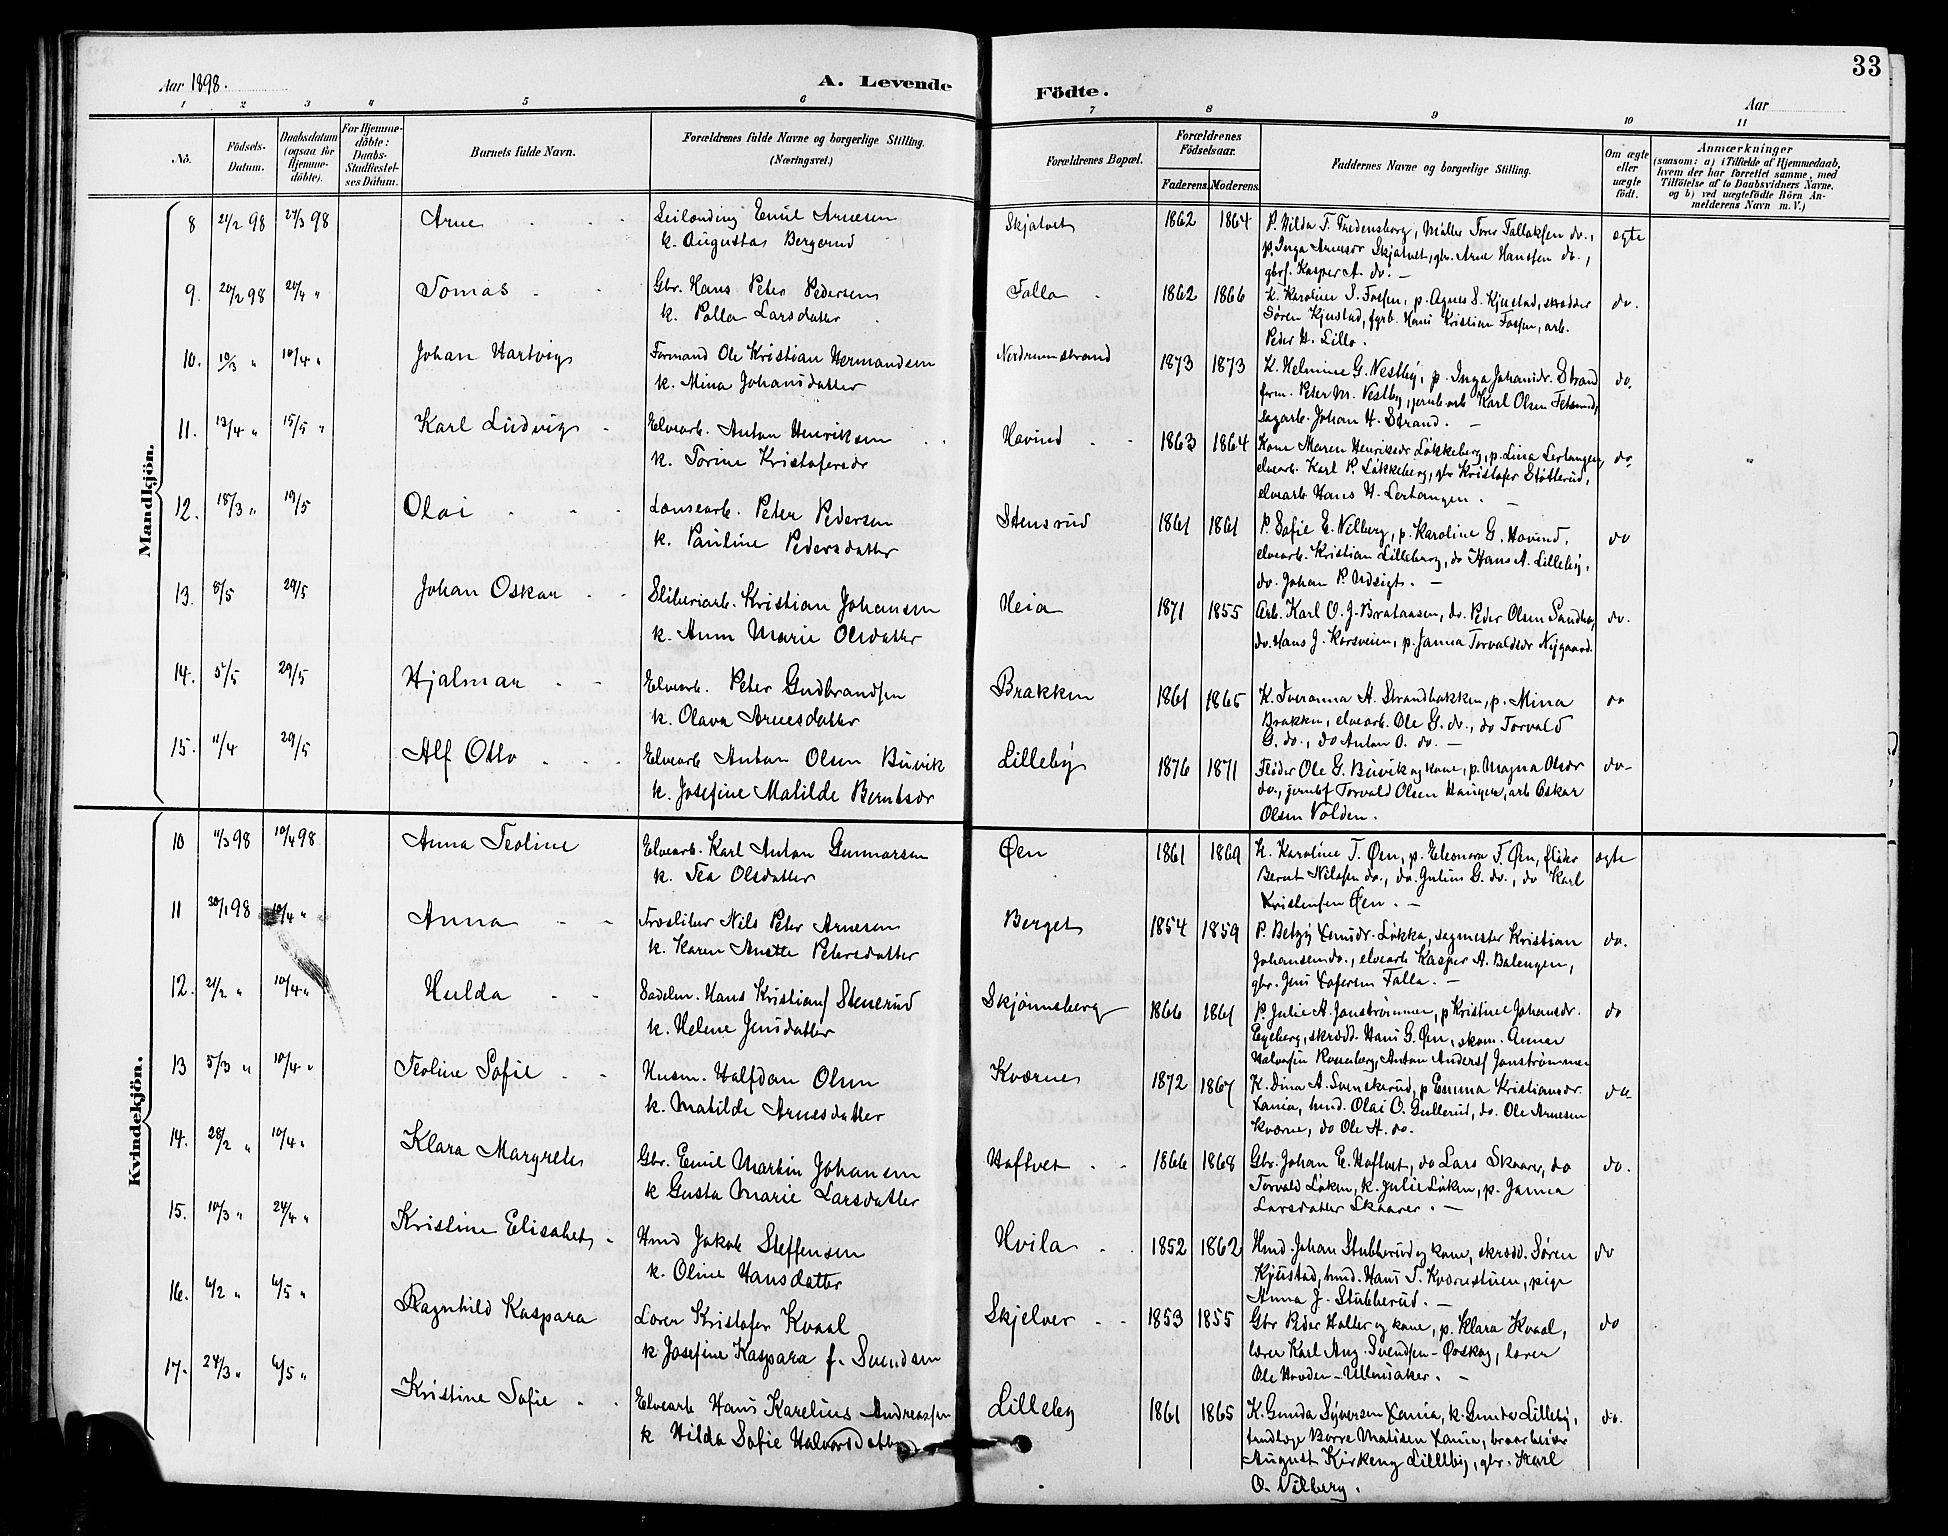 33
Aar 1898.
A. Levende Födte.
Aar
1 2 3 4 5 6 7 8 9 10 11
No.
Födsels-Datum.
Daabsdatum (ogsaa for Hjemme-döbte).
For Hjemme-döbte: Daabs-Stadfæstel-ses Datum.
Barnets fulde Navn.
Forældrenes fulde Navne og borgerlige Stilling. (Næringsvei.)
Forældrenes Bopæl.
Forældrenes Födselsaar.
Faderens. Moderens.
Faddernes Navne og borgerlige Stilling.
Om ægte eller uægte födt.
Anmærkninger
(saasom: a) i Tilfælde af Hjemmedaab, hvem der har forrettet samme, med Tilföielse af to Daabsvidners Navne, og b) ved uægtefödte Börn Anmelderens Navn m. V.)
Mandkjön.
8 21/2 98 27/3 98 Arne
Emil Arnesen
k. Augusta Bergerud
Skjatvet 1862 1864
P. Hilda T. Fredensborg, Møller Tore Tallaksen do.,
p. Inga Arnesdr Skjatvet, gbr. Arne Hanssen do.,
gbrs. Kasper A. do. —
ægte
9. 20/2 98 20/4 " Tomas
Gbr. Hans Peter Pedersen
k. Palla Larsdatter
Falla 1862 1866
k. Karoline S. Fossen, p. Agnes S. Kjustad, skrædder
Søren Kjustad, fgrb. Hans Kristian Fossen, arb.
Peder H. Lillo.
do.
10. 10/3 " 10/4 " Johan Hartvig
Formand Ole Kristian Hermandsen
k. Mina Johansdatter
Nordrumstrand 1873 1873
K. Helmine G. Nestby, p. Inga Johansdr. Strand
form. Peter M. Nestby, jernb.arb Karl Olsen Fetsund,
sagarb. Johan H. Strand. —
do.
11. 13/4 " 15/5 " Karl Ludvig
Elvearb. Anton Henriksen
k. Torine Kristofersdr
Hovind 1863 1864
Kone Maren Henriksdr Løkkeberg, p. Lina Lerhangen,
elvearb. Karl P. Løkkeberg, gbr Kristofer Støtterud,
elvearb Hans H. Lerhangen. —
do.
12. 18/3 " 19/5 Olai
Lonsearb. Peter Pedersen
k. Pauline Pedersdatter
Stensrud 1861 1861
P. Sofie E. Nilberg, p. Karoline G. Hovind,
elvearb. Kristian Lilleberg, do Hans A. Lilleby,
do. Johan P. Udsigt. —
do
13. 8/5 29/5 Johan Oskar
Sliberiarb. Kristian Johansen
k. Anna Marie Olsdatter
Heia 1871 1855
Arb. Karl O. J. Brataasen, do. Peder Olsen Sandbo,
do. Hans J. Korsveien, p. Janna Torvaldsdr Nygaard.
do.
14. 5/5 29/5 Hjalmar
Elvearb. Peter Gudbrandsen
k. Olava Arnesdatter
Brakken 1861 1865
K. Iveranna A. Strandbakken, p. Mina
Brakken, elvearb. Ole G. do., do Torvald
G. do., do Anton O. do. —
do
15. 11/4 29/5 Alf Otto
Elvearb Anton Olsen Buvik
k. Josefine Matilde Berntsdr
Lilleby 1876 1871
Fløder Ole G. Buvik og kone, p. Magna Olsdr
do., Torvald Olsen Haugen, arb Oskar
Olsen Volden.
do
Kvindekjön.
10 11/3 98 10/4 98 Anna Teoline
Elvearb. Karl Anton Gunnarsen
k. Tea Olsdatter
Øen 1861 1869
K. Karoline T. Øen, p. Eleonora T. Øen, fløder
Bernt Nilssen do., do. Julius G. do., do Karl
Kristensen Øen. —
ægte
11 30/1 98 10/4 " Anna
Træsliber Nils Peter Arnesen
k. Karen Anette Petersdatter
Berget 1854 1859
P. Betzy Løkka, sagmester Kristian
Johansen do., elvearb Kasper A. Balengen,
gbr. Jens Falla. —
do.
12. 21/2 " 10/4 " Hulda
Sadelm. Hans Kristians Stenerud
k. Helene Jensdatter
Skjønnsberg 1866 1861
P. Julie A. Jonstrømmen, p Kristine Johansdr.
Egeberg, skrædd. Hans G. Øen, skom. Anner
Halvorsen Rosenberg, Anton Anders Jonstrømmen
do
13 5/3 " 10/4 " Teoline Sofie
Husm. Halfdan Olsen
k. Matilde Arnesdatter
Kværne 1872 1867
K. Dina A. Svenskerud, p Emma Kristiansdr.
Xania, hmd. Olai O. Gullerud, do. Ole Arnesen
Kværne, do Ole H. do.
do
14. 28/2 " 10/4 " Klara Margrete
Gbr. Emil Martin Johansen
k Gusta Marie Larsdatter
Hoftvet 1866 1868
Gbr. Johan E. Hoftvet, do Lars Skaarer, do
Torvald Løken, k. Julie Løken, p. Janna
Larsdatter Skaarer. —
do.
15. 10/3 " 24/4 " Kristine Elisabet
Hmd Jakob Steffensen
k. Oline Hansdatter
Hvila 1852 1862
Hmd. Johan Stubberud og kone, skrædd. Søren
Kjustad, hmd. Hans T. Kværnstuen, pige
Anna J. Stubberud. —
do
16. 6/2 " 6/5 " Ragnhild Kaspara
Lærer Kristofer Kvaal
k Josefine Kaspara f. Svendsen
Skjelver 1853 1855
Gbr Peder Holter og kone, p. Klara Kvaal,
lærer Karl Aug. Svendsen - Ørskog, lærer
Ole Hovden - Ullensaker. —
do
17. 24/3 " 6/5 " Kristine Sofie
Elvearb Hans Karelius Andreassen
k Hilda Sofie Halvorsdatter
Lilleby 1861 1865
K. Gunda Syversen Xania, k. Gunda Lilleby,
tandlæge Borre Matisen Xania,
August Kirkeng Lilleby, gbr. Karl
O. Nilberg.
do.